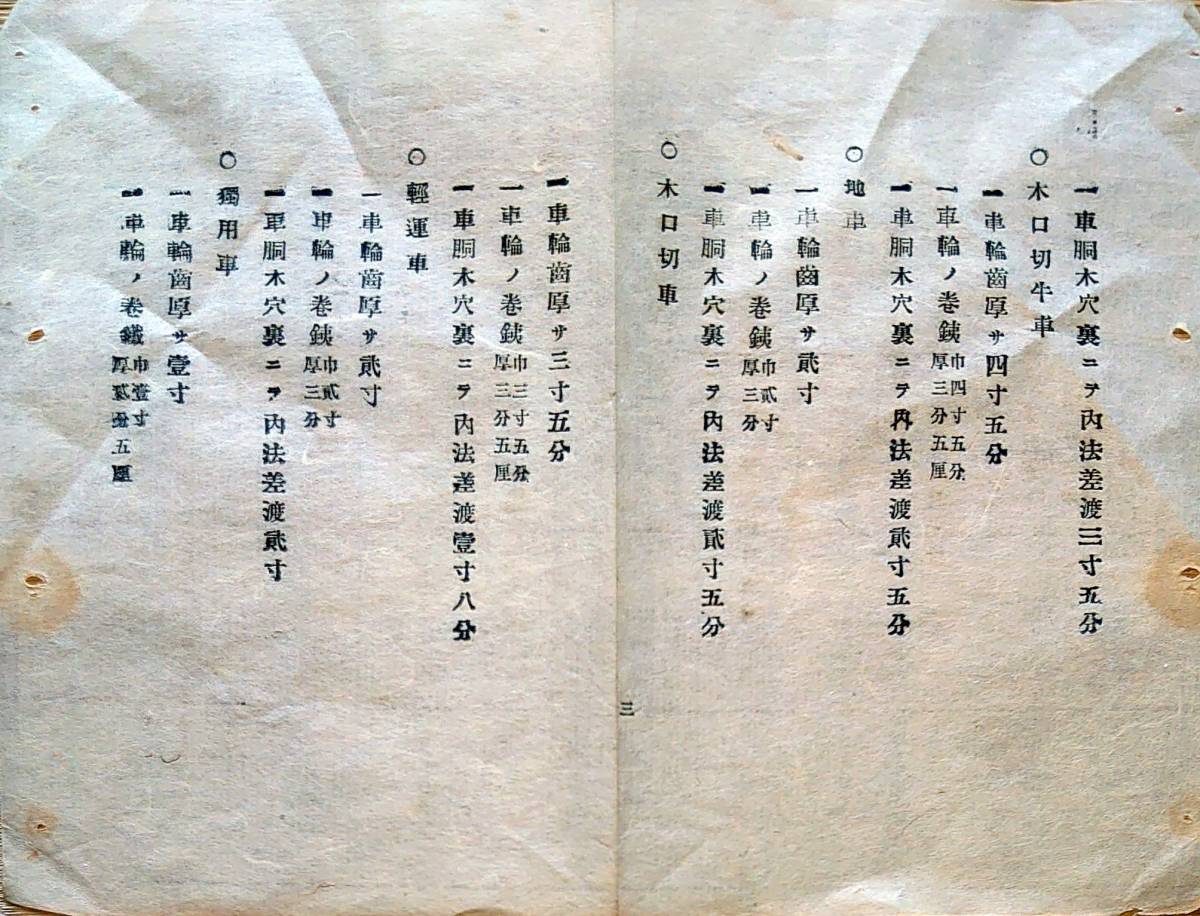 一車胴木穴裏ニテ内法差渡三寸五分
○木口切牛車
一車輪齒厚サ四寸五分
一車輪ノ巻鉄巾四寸五分
厚三分五厘
一車胴木穴裏ニテ内法差渡貳寸五分
○地車
一車輪齒厚サ貳寸
一車輪ノ巻鉄巾貳寸
厚三分
一車胴木穴裏ニテ内法差渡貳寸五分
○木口切車
三
一車輪齒厚サ三寸五分
一車輪ノ巻鉄巾三寸五分
厚三分五厘
一車胴木穴裏ニテ内法差渡壹寸八分
○輕運車
一車輪齒厚サ貳寸
一車輪ノ巻鉄巾貳寸
厚三分
一車胴木穴裏ニテ内法差渡貳寸
○獨用車
一車輪齒厚サ壹寸
一車輪ノ巻鐵巾壹寸
厚貳分五厘